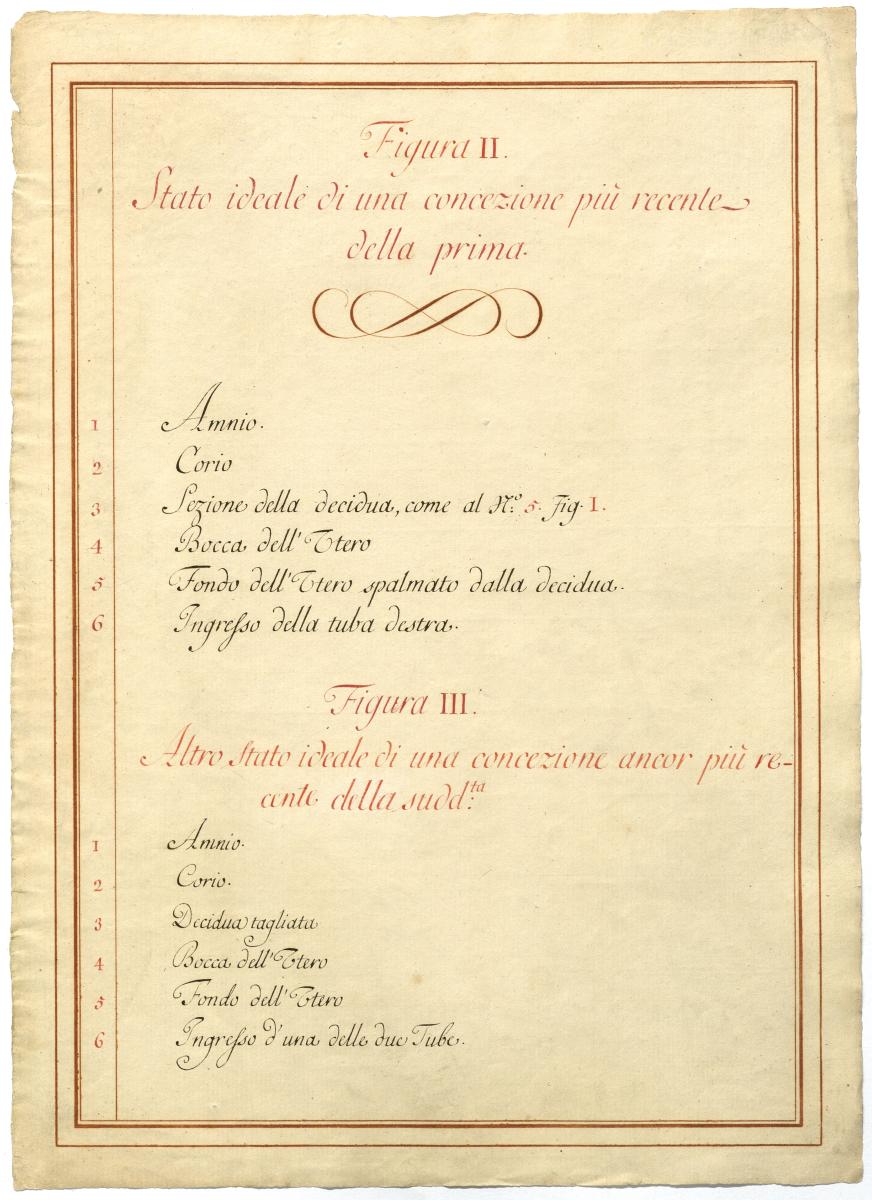 Figura II.
Stato ideale di una concezione più recente
della prima.
1 Amnio.
2 Corio
3 Sezione della decidua, come al N.º 5. Fig. I.
4 Bocca dell'Utero
5 Fondo dell'Utero spalmato dalla decidua.
6 Ingresso della tuba destra.
Figura III.
Altro Stato ideale di una concezione ancor più re-
cente della sudd.ta
1 Amnio.
2 Corio.
3 Decidua tagliata
4 Bocca dell'Utero
5 Fondo dell'Utero
6 Ingresso d'una delle due Tube.